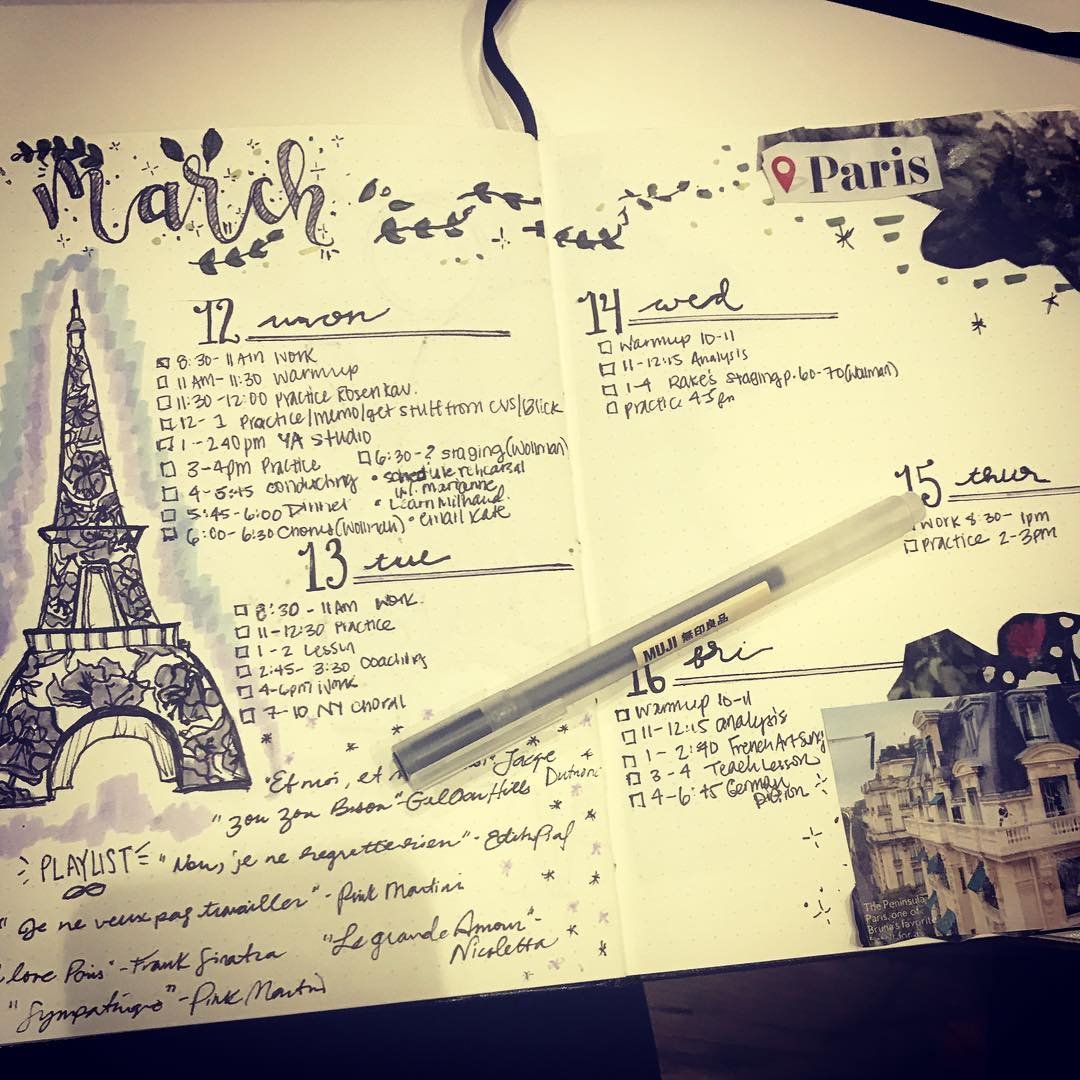 March
12 mon
8:30-11AM Work
11AM-11:30 Warmup
11:30-12:00 Practice Rosenkav.
12-1 Practice/memo/get stuff from CVS/Blick
1-240pm YA Studio
3-4pm Practice
6:30-? staging (Wollman)
4-5:45 conducting
• schedule rehearsal w/. Marianne
5:45-6:00 Dinner
• Learn Milhaud.
6:00-6:30 Chorus (Wollman)
• email Kate
13 tue
8:30-11AM Work.
11-12:30 Practice
1-2 Lesson
2:45-3:30 Coaching
4-6pm Work
7-10 NY Choral
"Et moi, et
Jacqe Dutronc
"Zou Zou Bisou"-Gillian Hills
PLAYLIST
"Non, je ne regrette rien"-Edith Piaf
"Je ne veux pas travailler"-Pink Martini
love Paris"-Frank Sinatra
"Le grande Amour"-
Nicoletta
"Sympathique"-Pink Martini
Paris
14 wed
Warmup 10-11
11-12:15 Analysis
1-4 Rake's staging p.60-70 (Wollman)
practice 4-5pm
15 thur
work 8:30-1pm
practice 2-3pm
MUJI 無印良品
16 fri
Warmup 10-11
11-12:15 analysis
1-2:40 French Art Song
3-4 Teach Lesson
4-6:45 German Diction
The Peninsula
Paris, one of
Bruna's favorite